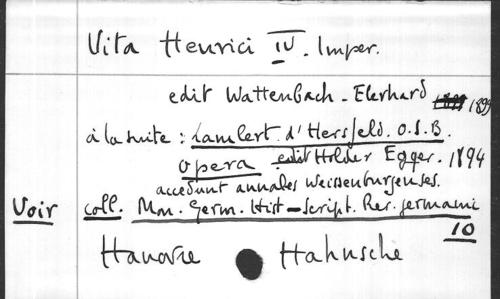 Vita Henrici IV. Imper.
edit Wattenbach - Eberhard 1899
à la suite : Lambert. d'Hersfeld. O.S.B.
opera edit Holder Egger. 1894
accedunt annales Weissenburgenses.
Voir coll. Mon. Germ. Hist - Script. Rer. germani
10
Hanovre Hahnsche